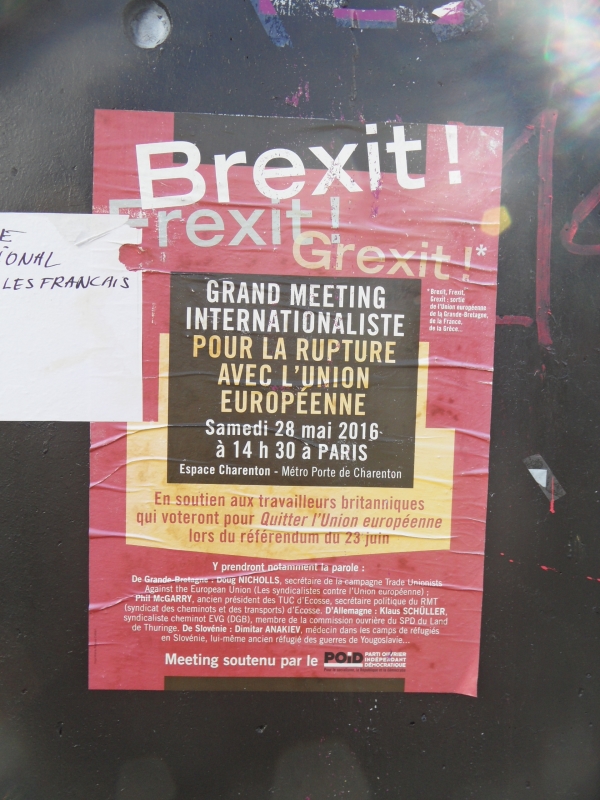 Brexit !
Frexit !
Grexit ! *
E
IONAL
LES FRANCAIS
* Brexit, Frexit,
Grexit : sortie
de l'Union européenne
de la Grande-Bretagne,
de la France,
de la Grèce...
GRAND MEETING
INTERNATIONALISTE
POUR LA RUPTURE
AVEC L'UNION
EUROPÉENNE
Samedi 28 mai 2016
à 14 h 30 à PARIS
Espace Charenton - Métro Porte de Charenton
En soutien aux travailleurs britanniques
qui voteront pour Quitter l'Union européenne
lors du référendum du 23 juin
Y prendront notamment la parole :
De Grande-Bretagne : Doug NICHOLLS, secrétaire de la campagne Trade Unionists
Against the European Union (Les syndicalistes contre l'Union européenne) ;
Phil McGARRY, ancien président des TUC d'Ecosse, secrétaire politique du RMT
(syndicat des cheminots et des transports) d'Ecosse. D'Allemagne : Klaus SCHÜLLER,
syndicaliste cheminot EVG (DGB), membre de la commission ouvrière du SPD du Land
de Thuringe. De Slovénie : Dimitar ANAKIEV, médecin dans les camps de réfugiés
en Slovénie, lui-même ancien réfugié des guerres de Yougoslavie...
Meeting soutenu par le POID PARTI OUVRIER
INDÉPENDANT
DÉMOCRATIQUE